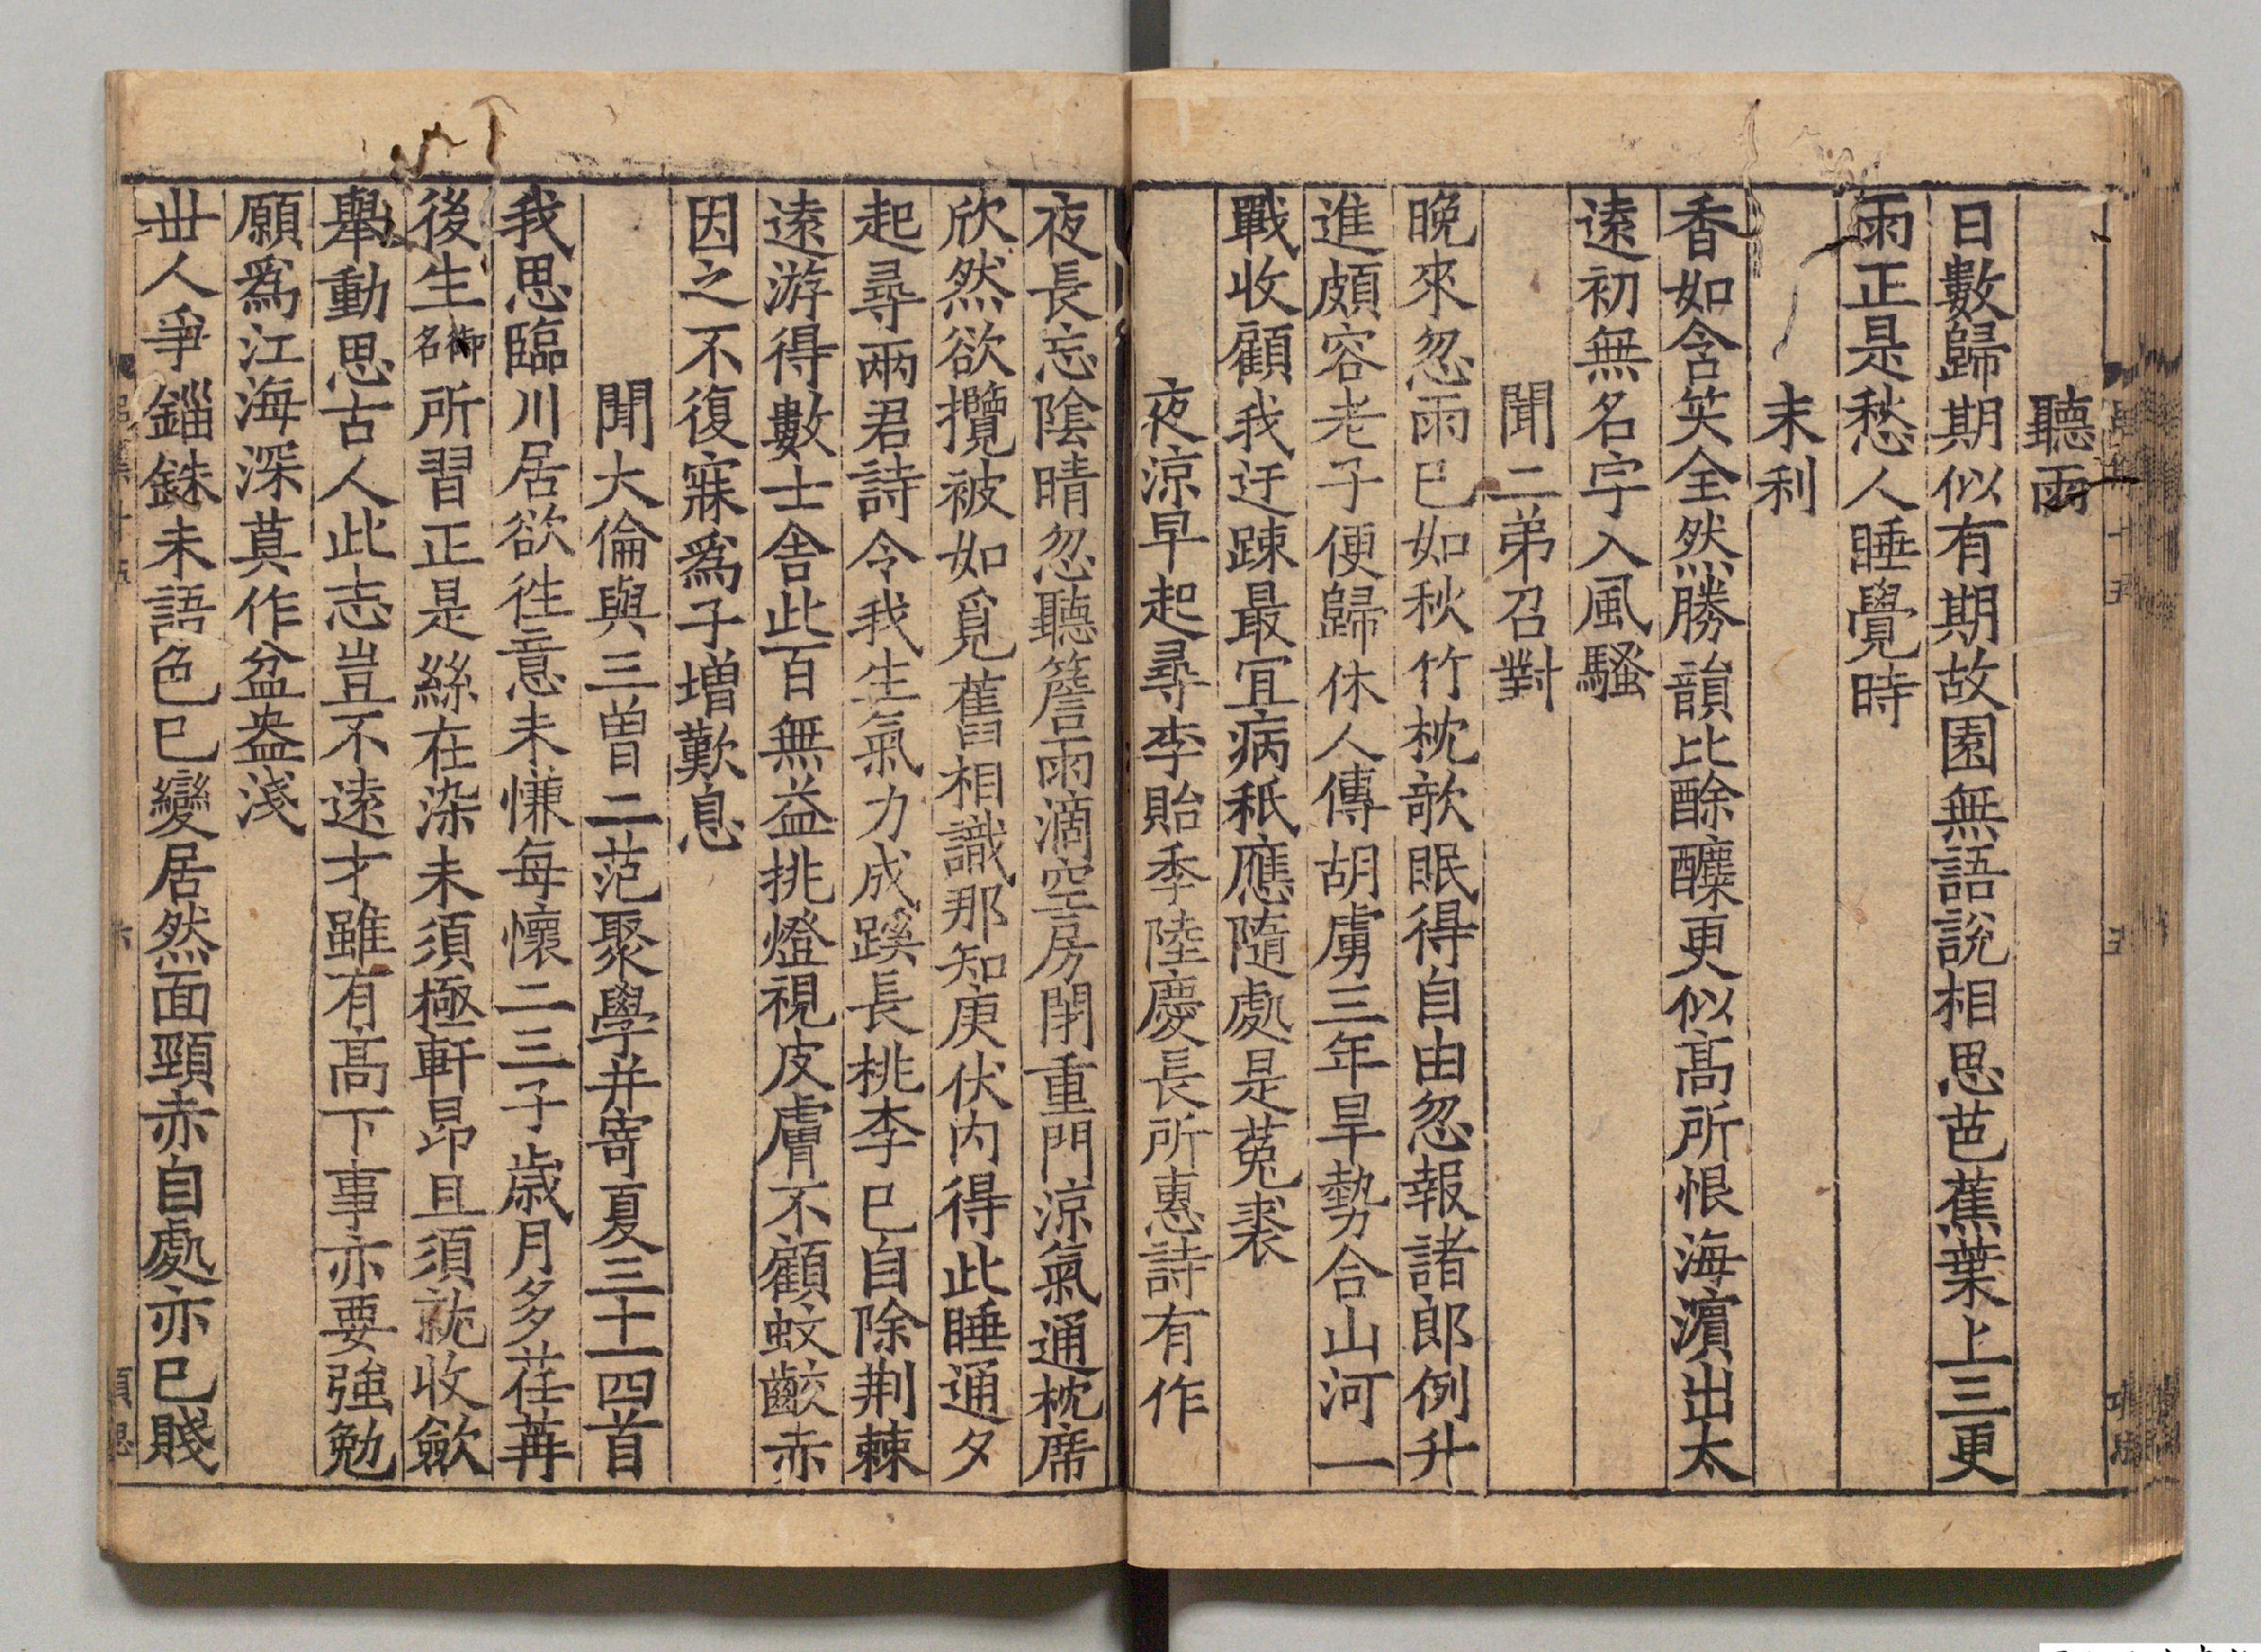 聽雨
日數歸期似有期故園無語說相思芭蕉葉上三更
雨正是愁人睡覺時
末利
香如含笑全然勝韻比酴醿更似高所恨海濵出太
遠初無名字入風騷
聞二弟召對
晚來忽雨已如秋竹枕欹眠得自由忽報諸郎例升
進頗容老子便歸休人傳胡虜三年旱勢合山河一
戰收顧我迂踈最宜病秖應隨處是菟裘
夜涼早起尋李貽季陸慶長所惠詩有作
夜長忘陰晴忽聽簷雨滴空房閉重門涼氣通枕席
欣然欲攬被如覓舊相識那知庚伏内得此睡通夕
起尋兩君詩令我生氣力成蹊長桃李已自除荆棘
遠游得數士舍此百無益挑燈視皮膚不顧蚊齩赤
因之不復寐爲子增歎息
聞大倫與三曾二范聚學并寄夏三十一四首
我思臨川居欲徃意未慊每懷二三子歲月多荏苒
後生御名所習正是絲在染未須極軒昂且須就收歛
舉動思古人此志豈不遠才雖有高下事亦要強勉
願爲江海深莫作盆盎淺
丗人爭錙銖未語色已變居然面頸赤自處亦已賤